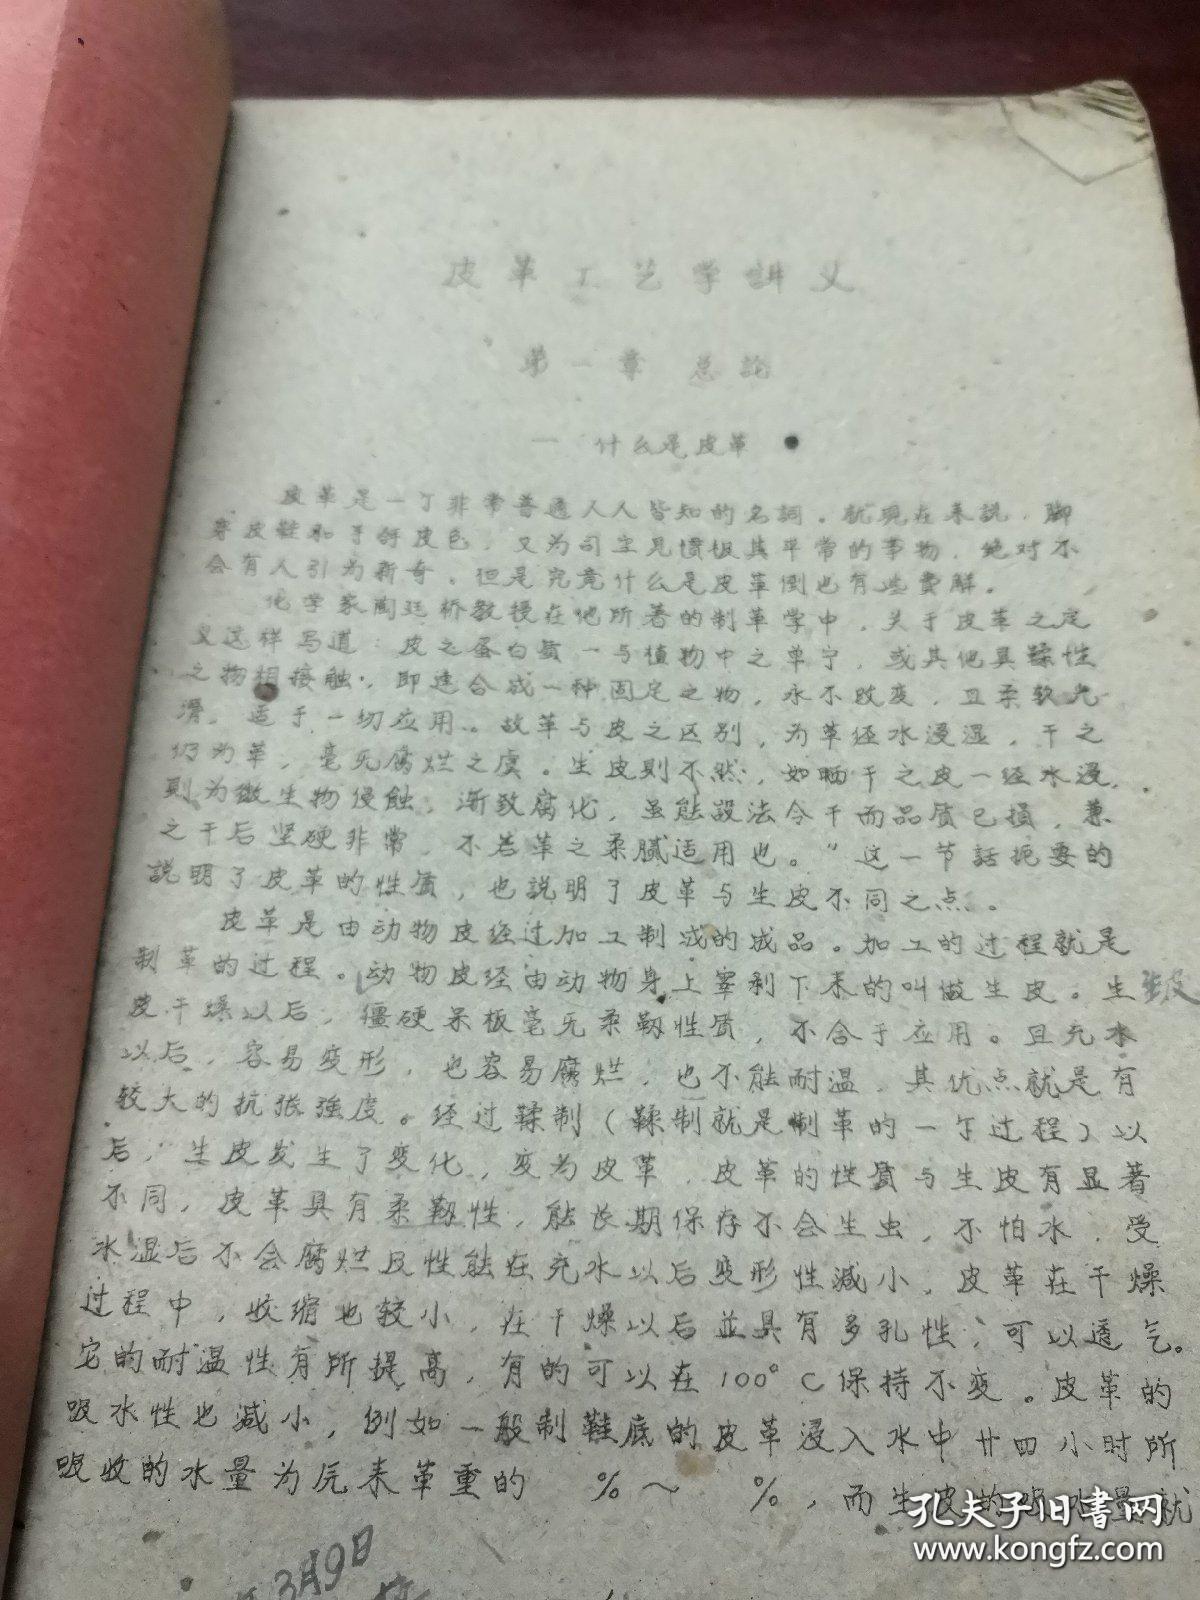 皮革工艺学講义
第一章 总論
一 什么是皮革
皮革是一丁非常普通人人皆知的名詞。就现在来説，脚
穿皮鞋和手提皮包，又为司空見慣极其平常的事物，绝对不
会有人引为新奇。但是究竟什么是皮革倒也有些費解。
化学家陶延桥教授在他所著的制革学中，关于皮革之定
义这样写道：皮之蛋白质一与植物中之单宁，或其他具鞣性
之物相接触，即速合成一种固定之物，永不改变，且柔软光
滑，适于一切应用。故革与皮之区别，为革经水浸湿，干之
仍为革，毫无腐烂之虞。生皮则不然，如晒干之皮一经水浸，
則为微生物侵蝕，渐致腐化，虽能設法令干而品质已損，兼
之干后坚硬非常，不若革之柔腻适用也。”这一节話扼要的
説明了皮革的性质，也説明了皮革与生皮不同之点。
皮革是由动物皮经过加工制成的成品。加工的过程就是
制革的过程。动物皮经由动物身上宰剥下来的叫做生皮。生
皮干燥以后，僵硬呆板毫无柔韌性质，不合于应用。且充水
以后，容易变形，也容易腐烂，也不能耐温，其优点就是有
较大的抗张強度。经过鞣制（鞣制就是制革的一丁过程）以
后，生皮发生了变化，变为皮革，皮革的性质与生皮有显著
不同，皮革具有柔韌性，能长期保存不会生虫，不怕水，受
水湿后不会腐烂且性能在充水以后变形性減小，皮革在干燥
过程中，收缩也较小，在干燥以后並具有多孔性，可以透气。
它的耐温性有所提高，有的可以在100°C保持不变。皮革的
吸水性也減小，例如一般制鞋底的皮革浸入水中廿四小时所
吸收的水量为原来革重的 %～ %，而生皮的吸水量就
3月9日
孔夫子旧书网
www.kongfz.com